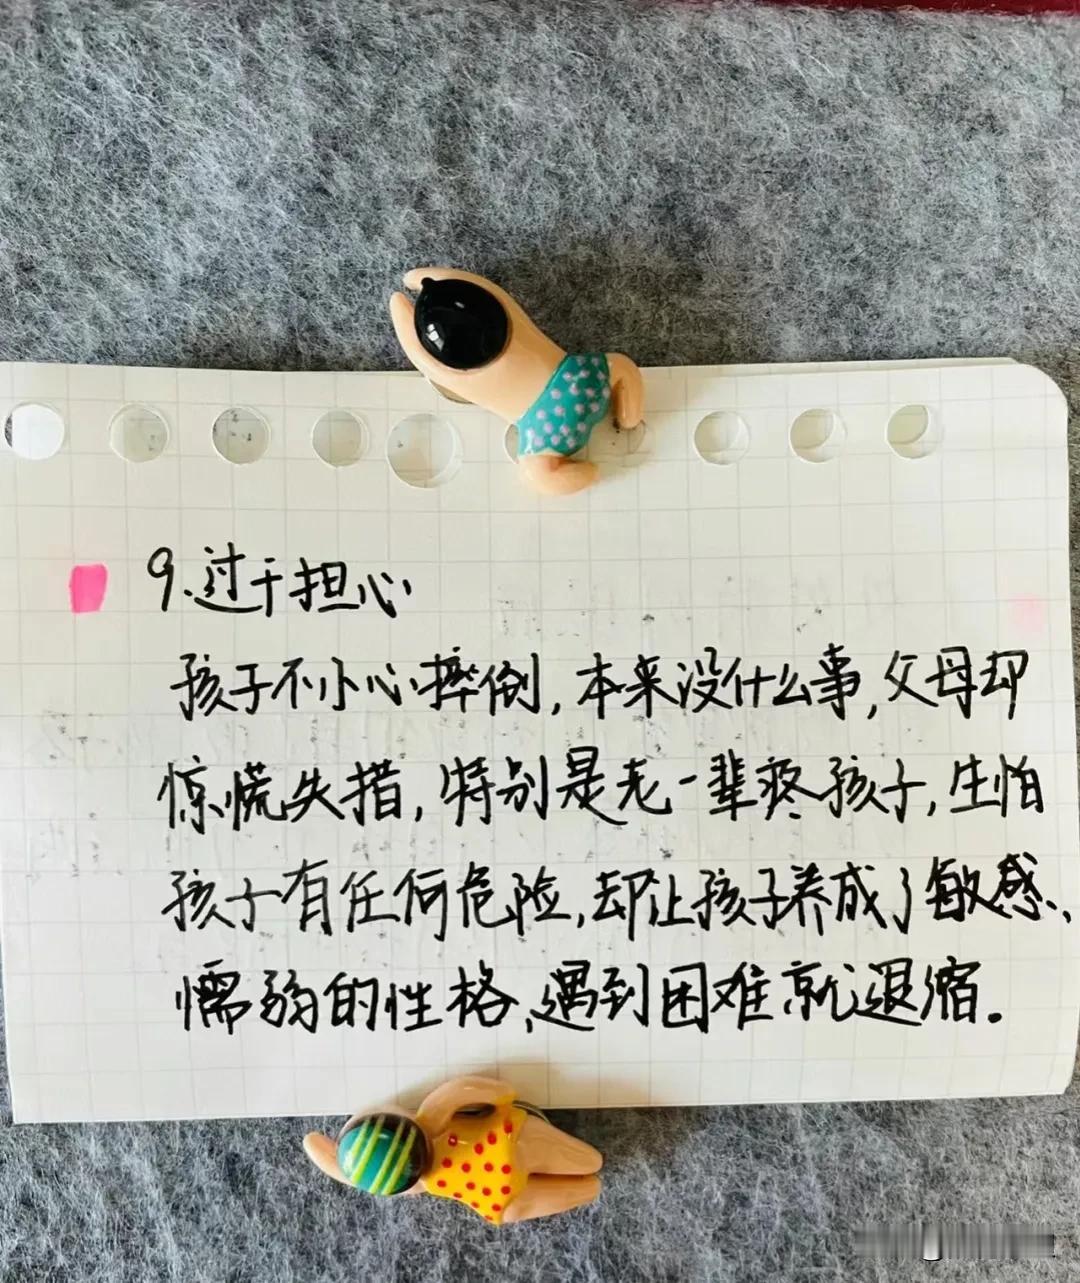 9.过于担心
孩子不小心摔倒,本来没什么事,父母却
惊慌失措,特别是老一辈疼孩子,生怕
孩子有任何危险,却让孩子养成了敏感、
懦弱的性格,遇到困难就退缩.